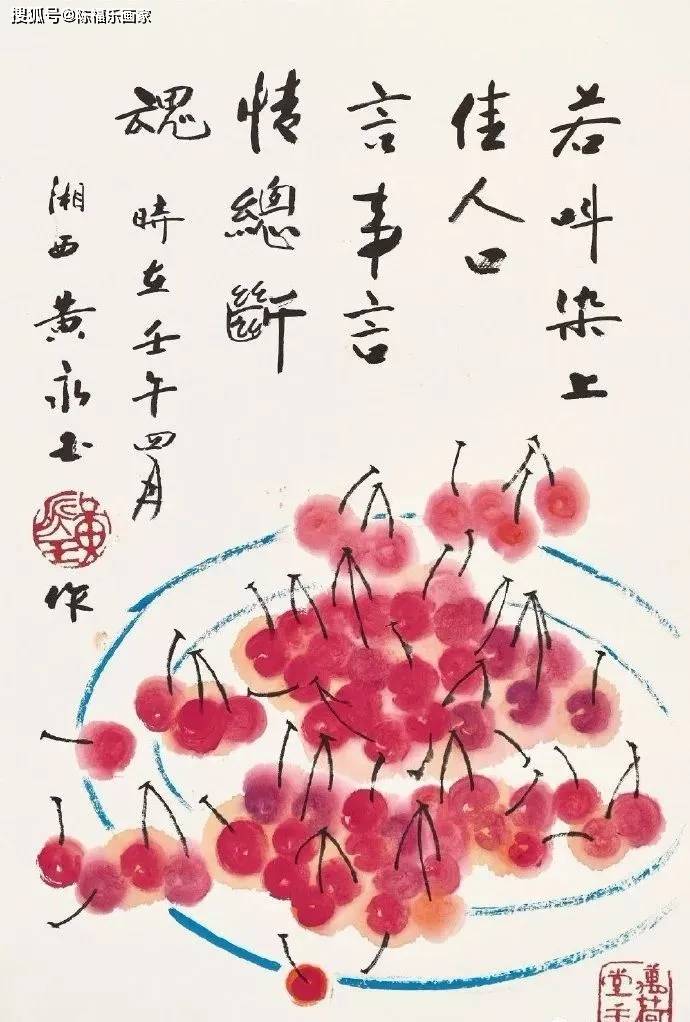 搜狐号@陈福乐画家
若叫染上
佳人口
言事言
情總斷
魂 時在壬午四月
湘西黄永玉
作
萬荷堂主